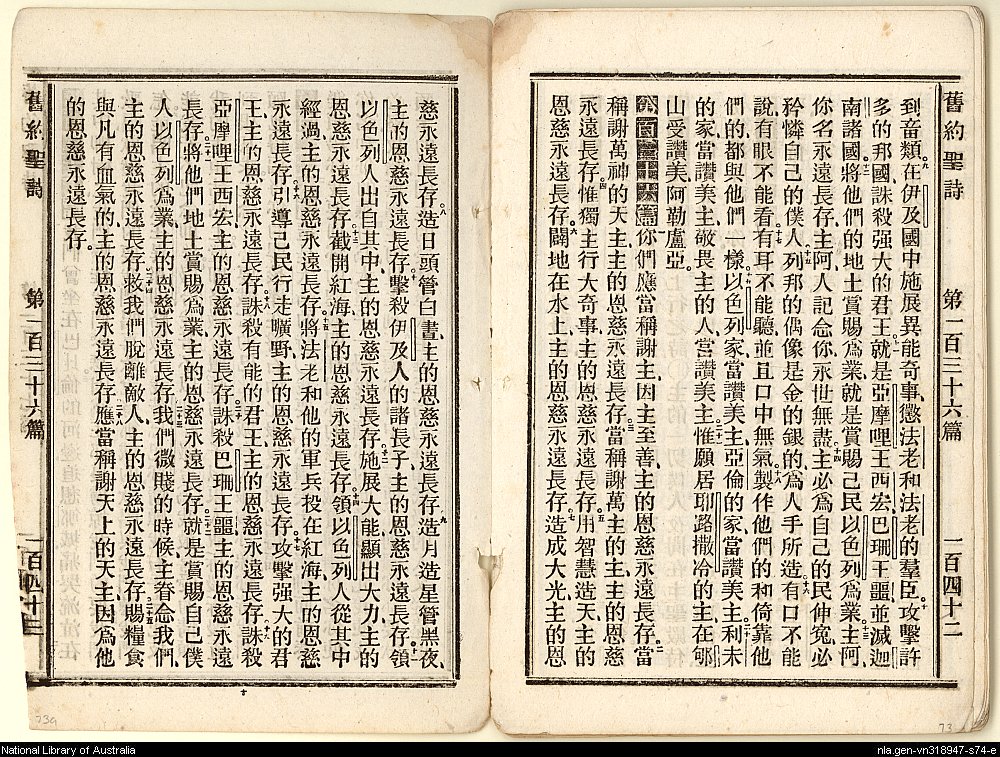 舊約聖詩 第一百三十六篇 一百四十二
到畜類九在伊及國中施展異能奇事懲法老和法老的羣臣十攻擊許
多的邦國誅殺强大的君王十一就是亞摩哩王西宏巴珊王噩並滅迦
南諸國十二將他們的地土賞賜爲業就是賞賜己民以色列爲業十三主阿
你名永遠長存主阿人記念你永世無盡十四主必爲自己的民伸冤必
矜憐自己的僕人十五列邦的偶像是金的銀的爲人手所造十六有口不能
說有眼不能看十七有耳不能聽並且口中無氣十八製作他們的和倚靠他
們的都與他們一樣十九以色列家當讚美主亞倫的家當讚美主二十利未
的家當讚美主敬畏主的人當讚美主二十一惟願居耶路撒冷的主在郇
山受讚美阿勒盧亞
第一百三十六篇一你們應當稱謝主因主至善主的恩慈永遠長存二當
稱謝萬神的天主主的恩慈永遠長存三當稱謝萬主的主主的恩慈
永遠長存四惟獨主行大奇事主的恩慈永遠長存五用智慧造天主的
恩慈永遠長存六闢地在水上主的恩慈永遠長存七造成大光主的恩
慈永遠長存八造日頭管白晝主的恩慈永遠長存九造月造星管黑夜
主的恩慈永遠長存十擊殺伊及人的諸長子主的恩慈永遠長存十一領
以色列人出自其中主的恩慈永遠長存十二施展大能顯出大力主的
恩慈永遠長存十三截開紅海主的恩慈永遠長存十四領以色列人從其中
經過主的恩慈永遠長存十五將法老和他的軍兵投在紅海主的恩慈
永遠長存十六引導己民行走曠野主的恩慈永遠長存十七攻擊强大的君
王主的恩慈永遠長存十八誅殺有能的君王主的恩慈永遠長存十九誅殺
亞摩哩王西宏主的恩慈永遠長存二十誅殺巴珊王噩主的恩慈永遠
長存二十一將他們地土賞賜爲業主的恩慈永遠長存二十二就是賞賜自己僕
人以色列爲業主的恩慈永遠長存二十三我們微賤的時候主眷念我們
主的恩慈永遠長存二十四救我們脫離敵人主的恩慈永遠長存二十五賜糧食
與凡有血氣的主的恩慈永遠長存二十六應當稱謝天上的天主因爲他
的恩慈永遠長存
舊約聖詩 第一百三十六篇 一百四十三
739
73
National Library of Australia
nla.gen-vn318947-s74-e